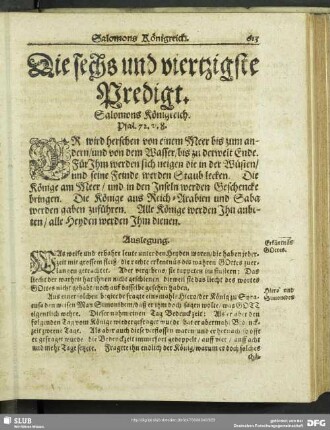 Salomons Königreich.
613
Die sechs und viertzigste
Predigt.
Salomons Königreich.
Psal. 72. v. 8.
ER wird herschen von einem Meer bis zum an-
dern/und von dem Wasser/bis zu der welt Ende.
Für Ihm werden sich neigen die in der Wüsten/
und seine Feinde werden Staub lecken. Die
Könige am Meer/ und in den Inseln werden Geschencke
bringen. Die Könige aus Reich-Arabien und Saba
werden gaben zuführen. Alle Könige werden Ihn anbe-
ten/ alle Heyden werden Ihm dienen.
Auslegung.
Was weise und erfahrne leute unter den Heyden waren, die haben jeder-
zeit mit grossem fleiß die rechte erkentnis des wahren GOttes zu er-
langen getrachtet. Aber vergebens: sie tappeten im finstern: Das
liecht der warheit ist ihnen nicht geschienen: dieweil sie das liecht des wortes
GOttes nicht gehabt/noch auf dasselbe gesehen haben.
Aus einer solchen begierde fragte einsmahls Hiero/der König zu Syra-
cusa den weisen Man Simonidem/ob er ihm doch sagen wolte/was GOTT
eigentlich wehre. Dieser nahm einen Tag Bedenckzeit: Als er aber den
folgenden Tag vom Könige wieder gefragt wurde/bat er abermahl Bedenck-
zeit zween Tage. Als aber auch diese verflossen waren/und er hernach so off-
ter gefragt wurde/die Bedenckzeit immerfort gedoppelt/ auff vier/ auff acht
und mehr Tage setzete. Fragete ihn endlich der König/warum er doch solches
thä-
GOttes.
Hiero und
Simonides
http://digital.slub-dresden.de/
SLUB
Wir führen Wissen.
gefördert von der
Deutschen Forschungsgemeinschaft
DFG